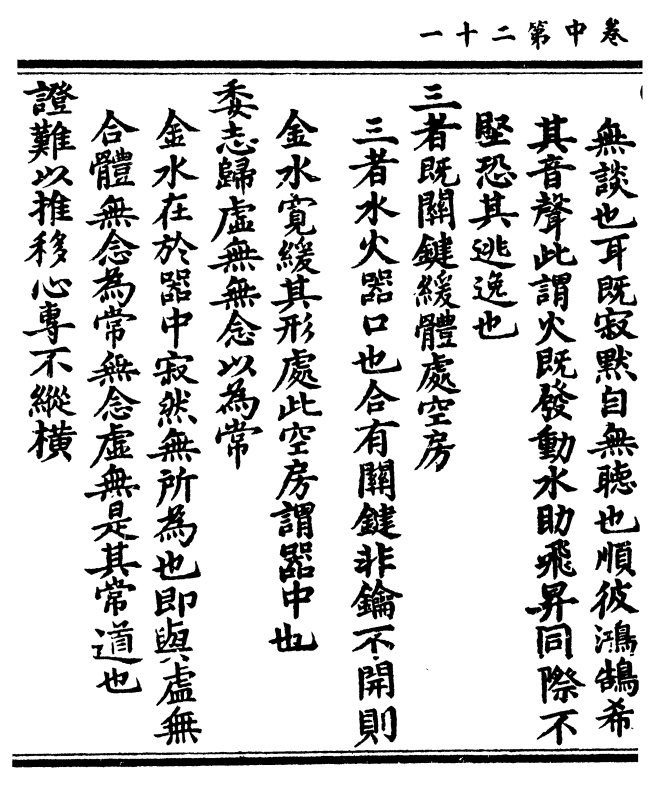 卷中第二十一
無談也耳既寂默自無聽也順彼鴻鵠希
其音聲此謂火既發動水助飛昇同際不
堅恐其逃逸也
三者既關鍵緩體處空房
三者水火器口也合有關鍵非鑰不開則
金水寬緩其形處此空房謂器中也
委志歸虛無無念以為常
金水在於器中寂然無所為也即與虛無
合體無念為常無念虛無是其常道也
證難以推移心專不縱橫